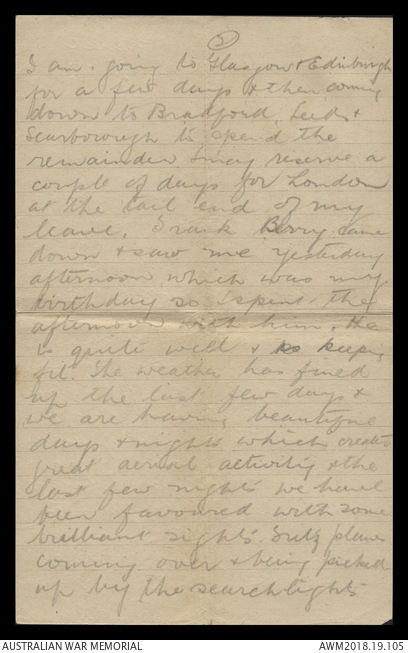 5
I am going to Glasgow & Edinburgh
for a few days & then coming
down to Bradford, Leeds &
Scarborough to spend the
remainder I may reserve a
couple of days for London
at the tail end of my
leave. Frank Berry came
down & saw me yesterday
afternoon which was my
birthday so I spent the
afternoon with him. He
is quite well & keeping
fit. The weather has fined
up the last few days &
we are having beautiful
days & nights which creates
great aerial activity & the
last few nights we have
been favoured with some
brilliant sights. planes
coming over & being picked
up by the searchlights
AUSTRALIAN WAR MEMORIAL
AWM2018.19.105